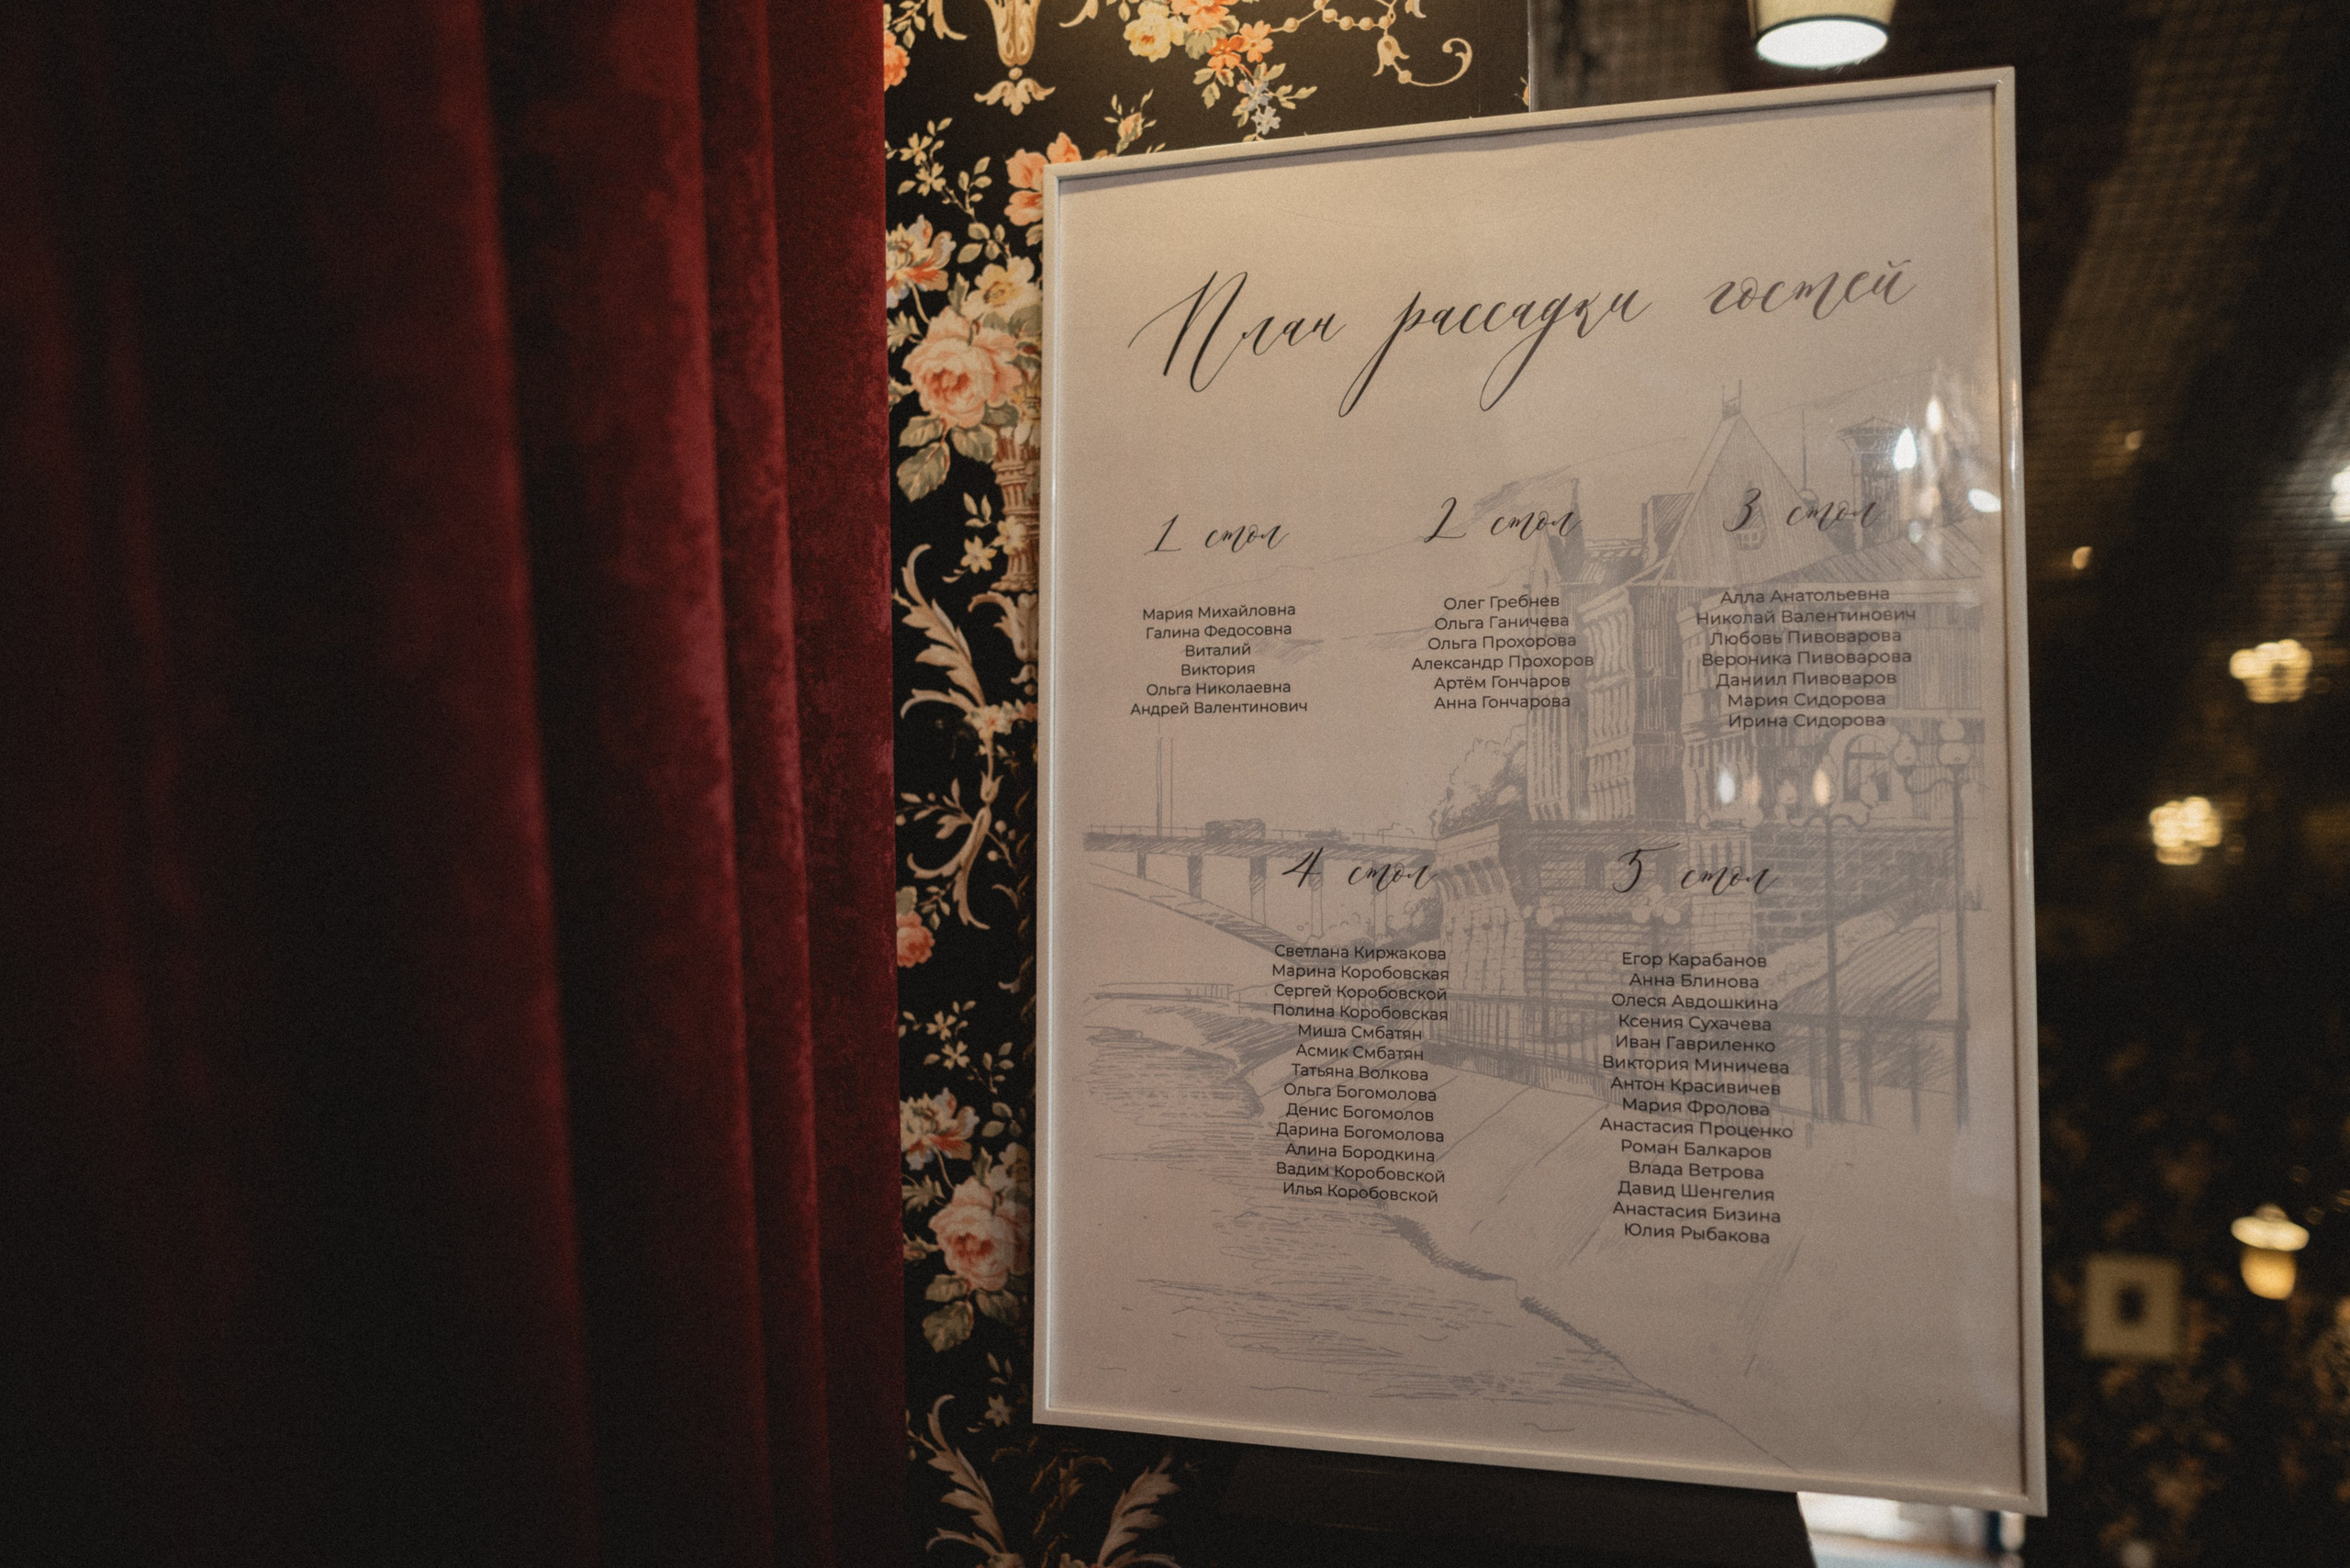 План рассадки гостей
1 стол
Мария Михайловна
Галина Федосовна
Виталий
Виктория
Ольга Николаевна
Андрей Валентинович
2 стол
Олег Гребнев
Ольга Ганичева
Ольга Прохорова
Александр Прохоров
Артём Гончаров
Анна Гончарова
3 стол
Алла Анатольевна
Николай Валентинович
Любовь Пивоварова
Вероника Пивоварова
Даниил Пивоваров
Мария Сидорова
Ирина Сидорова
4 стол
Светлана Киржакова
Марина Коробовская
Сергей Коробовской
Полина Коробовская
Миша Смбатян
Асмик Смбатян
Татьяна Волкова
Ольга Богомолова
Денис Богомолов
Дарина Богомолова
Алина Бородкина
Вадим Коробовской
Илья Коробовской
5 стол
Егор Карабанов
Анна Блинова
Олеся Авдошкина
Ксения Сухачева
Иван Гавриленко
Виктория Миничева
Антон Красивичев
Мария Фролова
Анастасия Проценко
Роман Балкаров
Влада Ветрова
Давид Шенгелия
Анастасия Бизина
Юлия Рыбакова